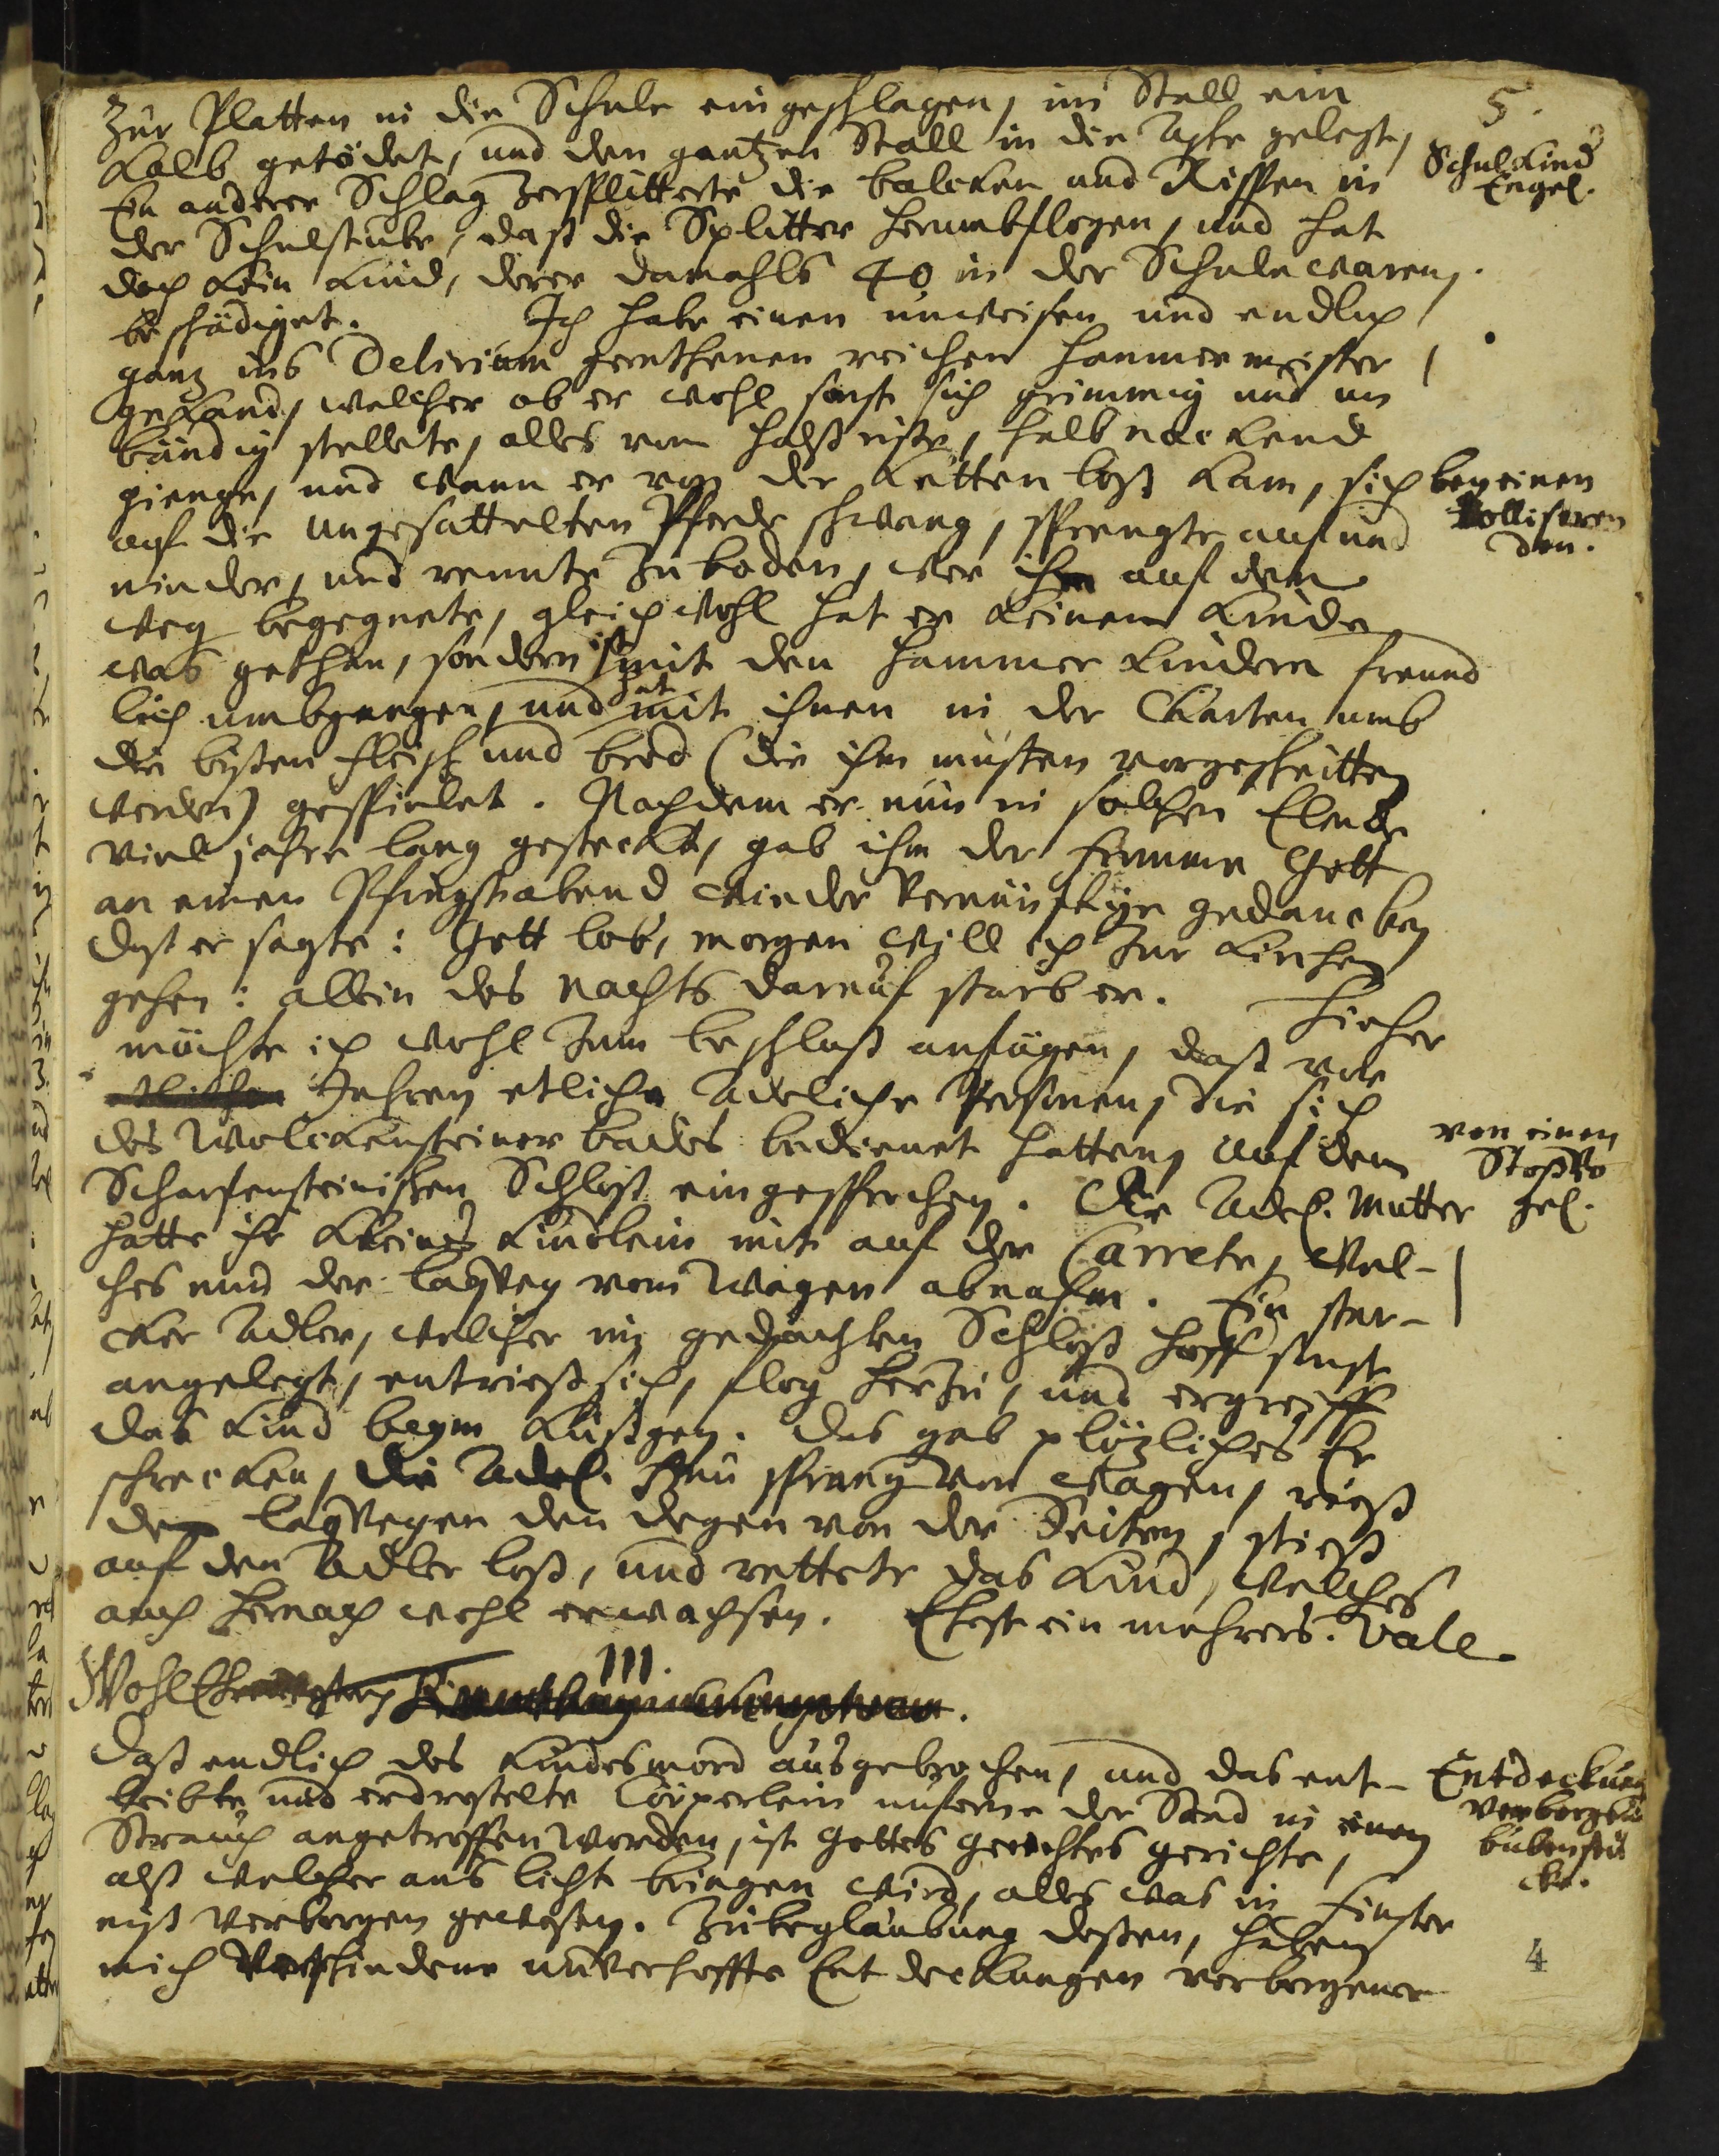 5.
Zur Platten in die Schule eingeschlagen, im Stall ein
Kalb getödet, und den gantzen Stall in die Asche gelegt,
Schul Kind
Engel.
Ein anderer Schlag zersplitterte die balcken und Rispen in
der Schulstube, daß die Splitter herumbflogen, und hat
doch kein Kind, derer damahls 40 in der Schule waren,
beschädiget. Ich habe einen unweisen und endlich
ganz ins Delirium gerathenen reichen Hammermeister
gekand, welcher ob er wohl sonst sich grimmig und un
bändig stellete, alles vom halß risse, halb nackend
gienge, und wann er von der Ketten loß kam, sich
bey einen
Tollisiren
den.
auf die ungesattelten Pferde schwang, sprengte auf und
nieder, und rennte zu boden, wer ihm auf dem
weg begegnete, gleichwohl hat er keinem Kinde
was gethan, sondern ist mit den Hammer Kindern freund
lich umbgangen, und hat mit ihnen in der Karten umb
die bißen fleisch und brod (die ihm musten vorgeschnitten
werden) gespielet. Nachdem er nun in solchen Elende
viel jahre lang gesteckt, gab ihm der fromme Gott
an einen Pfingstabend wieder vernünftige gedancken
daß er sagte: Gott lob, morgen will ich zur Kirchen
gehen: allein des nachts darauf starb er. Hieher
möchte ich wohl zum beschluß anfügen, daß vor
etlichen Jahren etliche Adeliche Personen, die sich
des Wolckensteiner bades bedienet hatten, auf dem
von einen
Stoßvo
gel.
Scharfensteinischen Schloß eingesprochen. Die Adel. Mutter
hatte ihr kleines Kindlein mit auf der Carrete, wel-
ches nun der laqvey vom Wagen abnahm. Ein star-
cker Adler, welcher im gedachten Schloß hoff sonst
angelegt, entrieß sich, flog herzu, und ergreiff
das Kind beym Küßgen. Das gab plözliches Er
schrecken, die Adel. Frau sprang vom Wagen, riß
dem laqveyen den degen von der Seiten, stieß
auf den Adler loß, und rettete das Kind, welches
auch hernach wohl erwachsen. Ehest ein mehrers. Vale
III.
Daß endlich des Kindesmord ausgebrochen, und das ent-
Entdeckung
verborgener
bubenstü
cke.
leibte und erdroßelte Cörperlein unferne der Stad in einen
Strauch angetroffen worden, ist Gottes gerechtes gerichte,
alß welcher ans licht bringen wird, alles was in Finster
niß verborgen gewesen. Zubeglaubung deßen, haben
mich verschiedene unverhoffte Entdeckungen verborgener
4